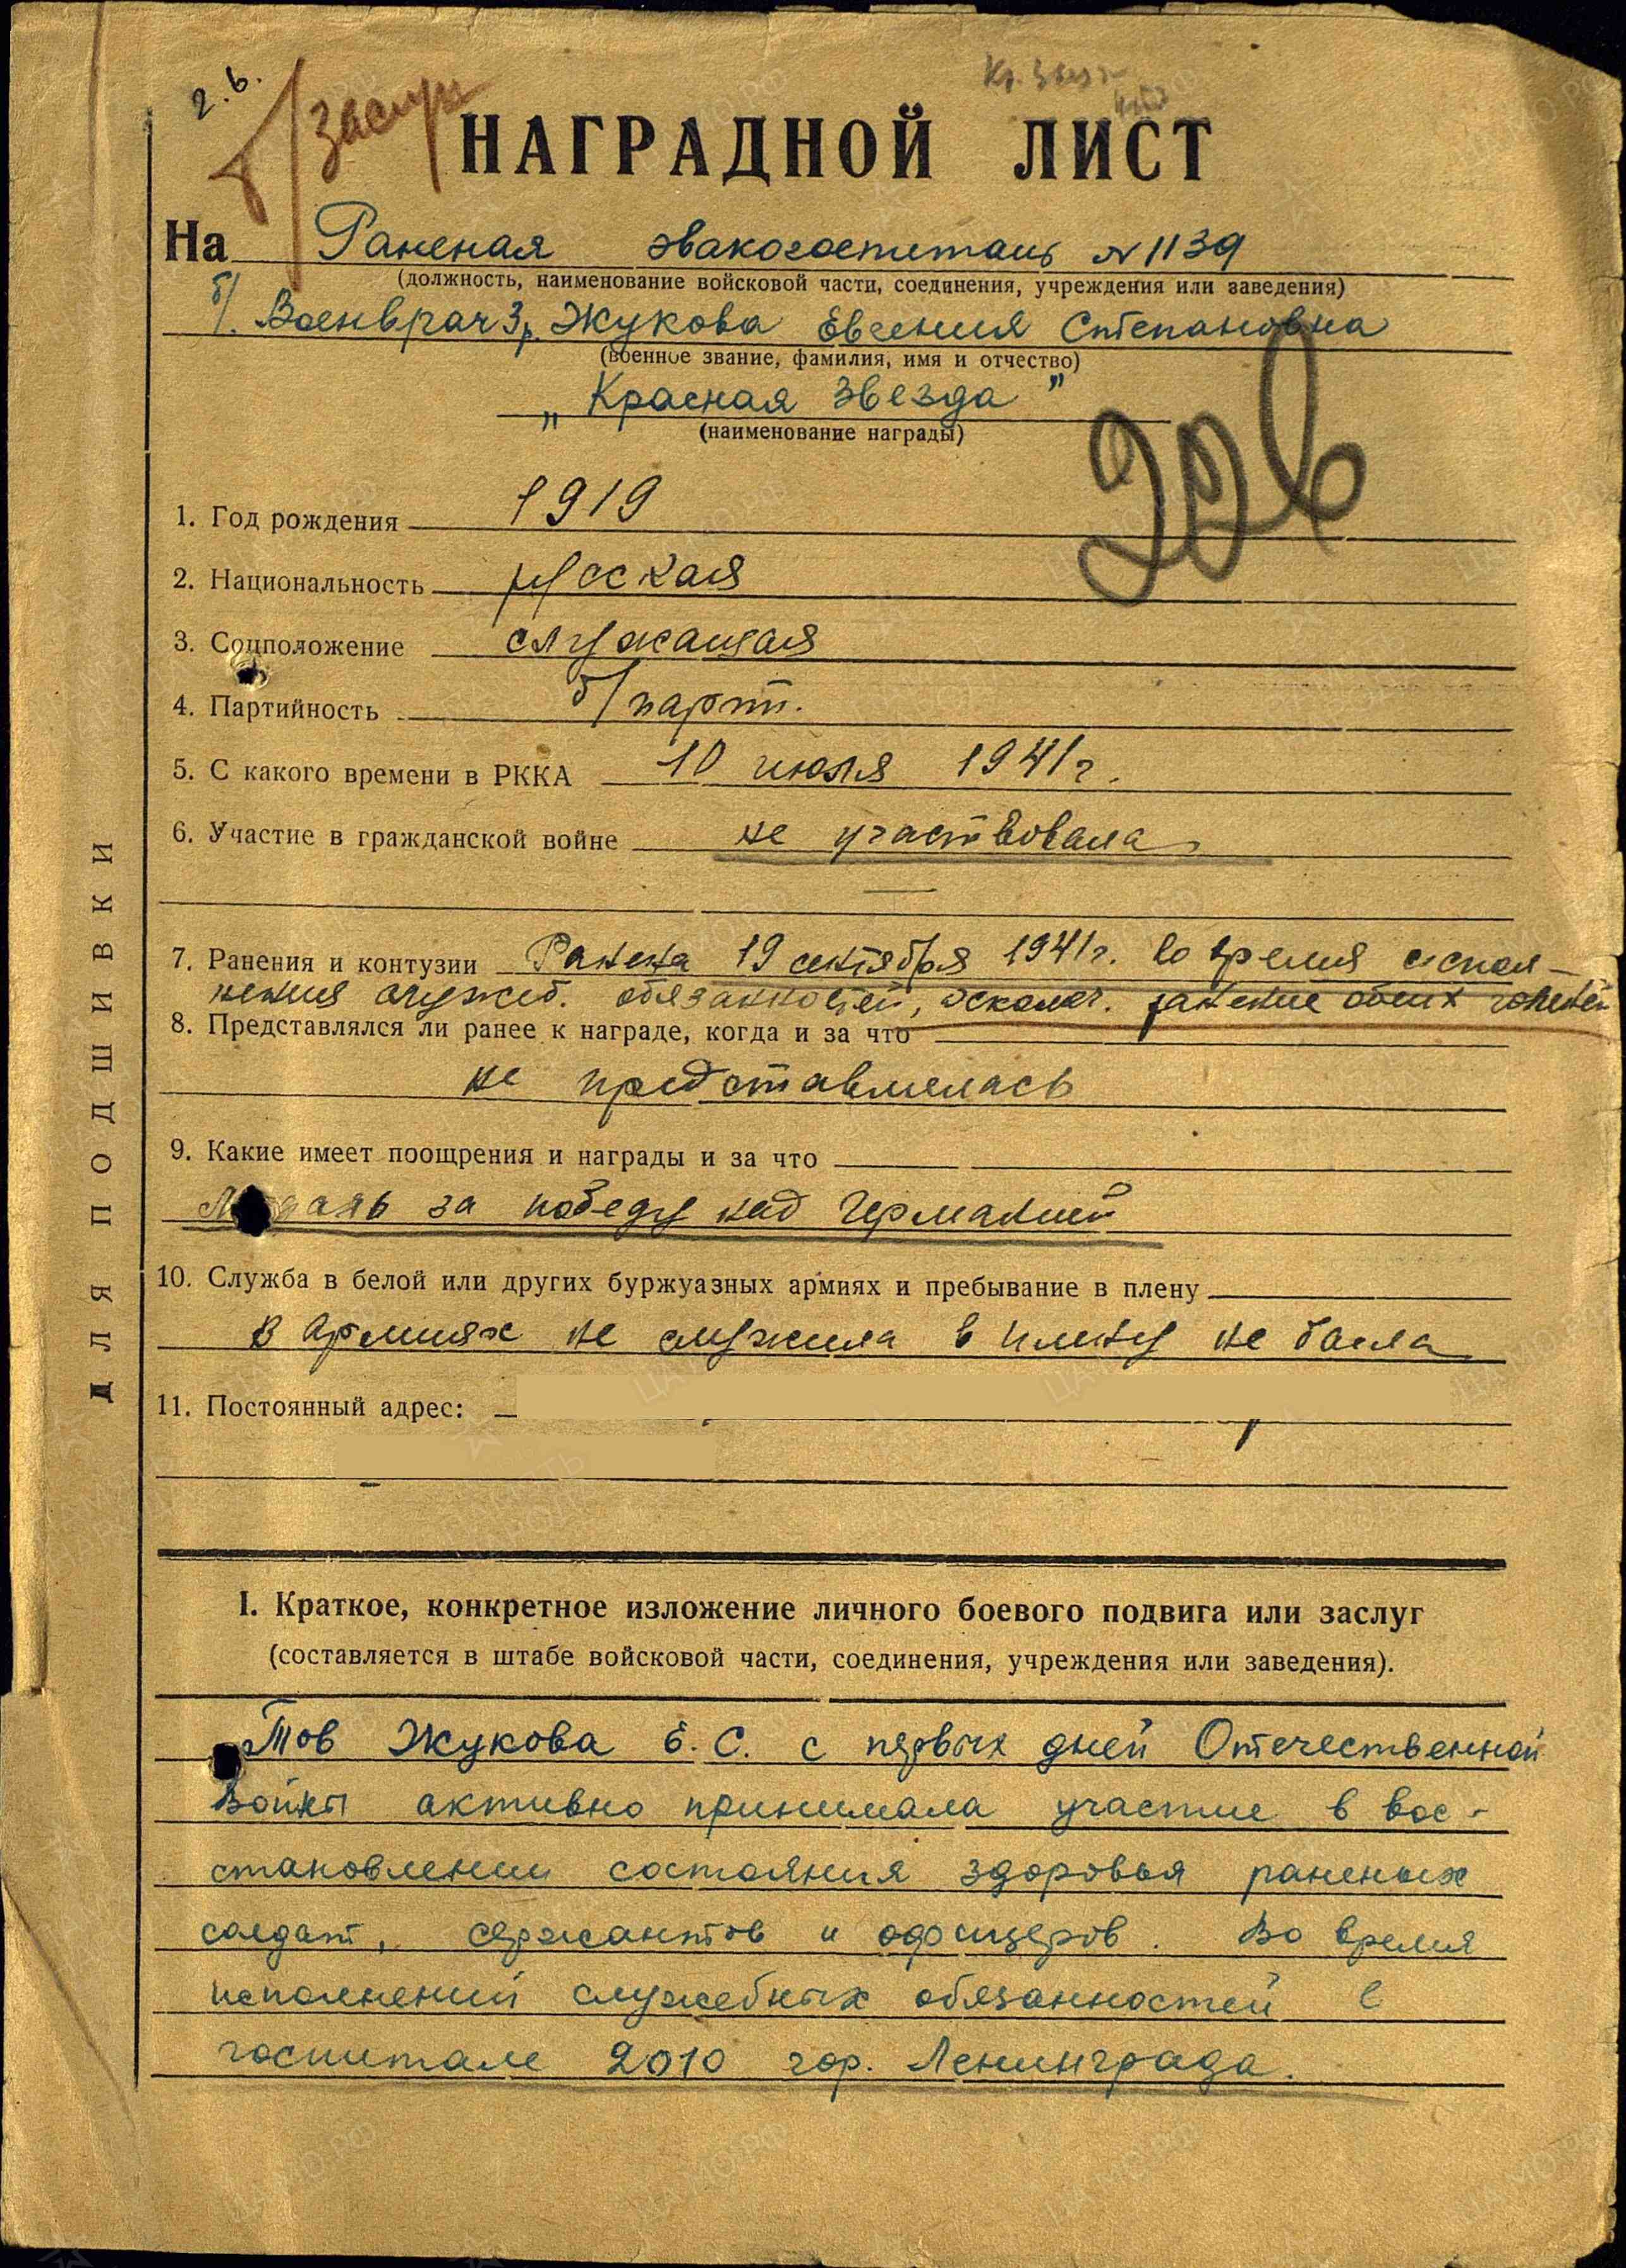 2.6.
б/заслуг
Кр. Звезд
НАГРАДНОЙ ЛИСТ
На Раненая эвакогоспиталь N 1139
(должность, наименование войсковой части, соединения, учреждения или заведения)
б/. Военврач 3 р. Жукова Евгения Степановна
(военное звание, фамилия, имя и отчество)
„Красная Звезда"
(наименование награды)
1. Год рождения 1919
2. Национальность русская
3. Соцположение служащая
4. Партийность б/парт.
5. С какого времени в РККА 10 июля 1941 г.
6. Участие в гражданской войне не участвовала
7. Ранения и контузии Ранена 19 сентября 1941 г. во время испол-
нения служеб. обязанностей, осколоч. ранение обеих голеней
8. Представлялся ли ранее к награде, когда и за что
не представлялась
9. Какие имеет поощрения и награды и за что
Медаль за победу над Германией
10. Служба в белой или других буржуазных армиях и пребывание в плену
в армиях не служила в плену не была
11. Постоянный адрес:
I. Краткое, конкретное изложение личного боевого подвига или заслуг
(составляется в штабе войсковой части, соединения, учреждения или заведения).
Тов Жукова Е. С. с первых дней Отечественной
Войны активно принимала участие в вос-
становлении состояния здоровья раненых
солдат, сержантов и офицеров. Во время
исполнений служебных обязанностей в
госпитале 2010 гор. Ленинграда.
ДЛЯ ПОДШИВКИ